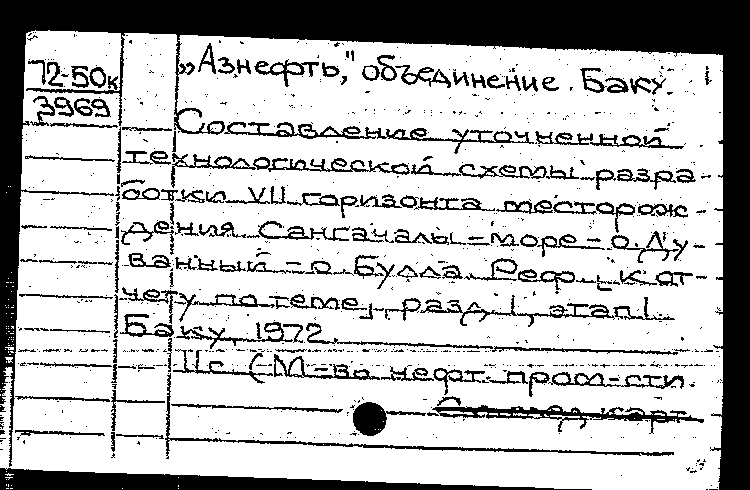 72-50к
3969
„Азнефть," объединение. Баку.
Составление уточненной
технологической схемы разра-
ботки VII горизонта месторож-
дения Сангачалы-море-о.Ду-
ванный-о.Булла. Реф. к от-
чету по теме, разд. 1, этап 1.
Баку, 1972.
11с. (М-во нефт. пром-сти.
См. след. карт.